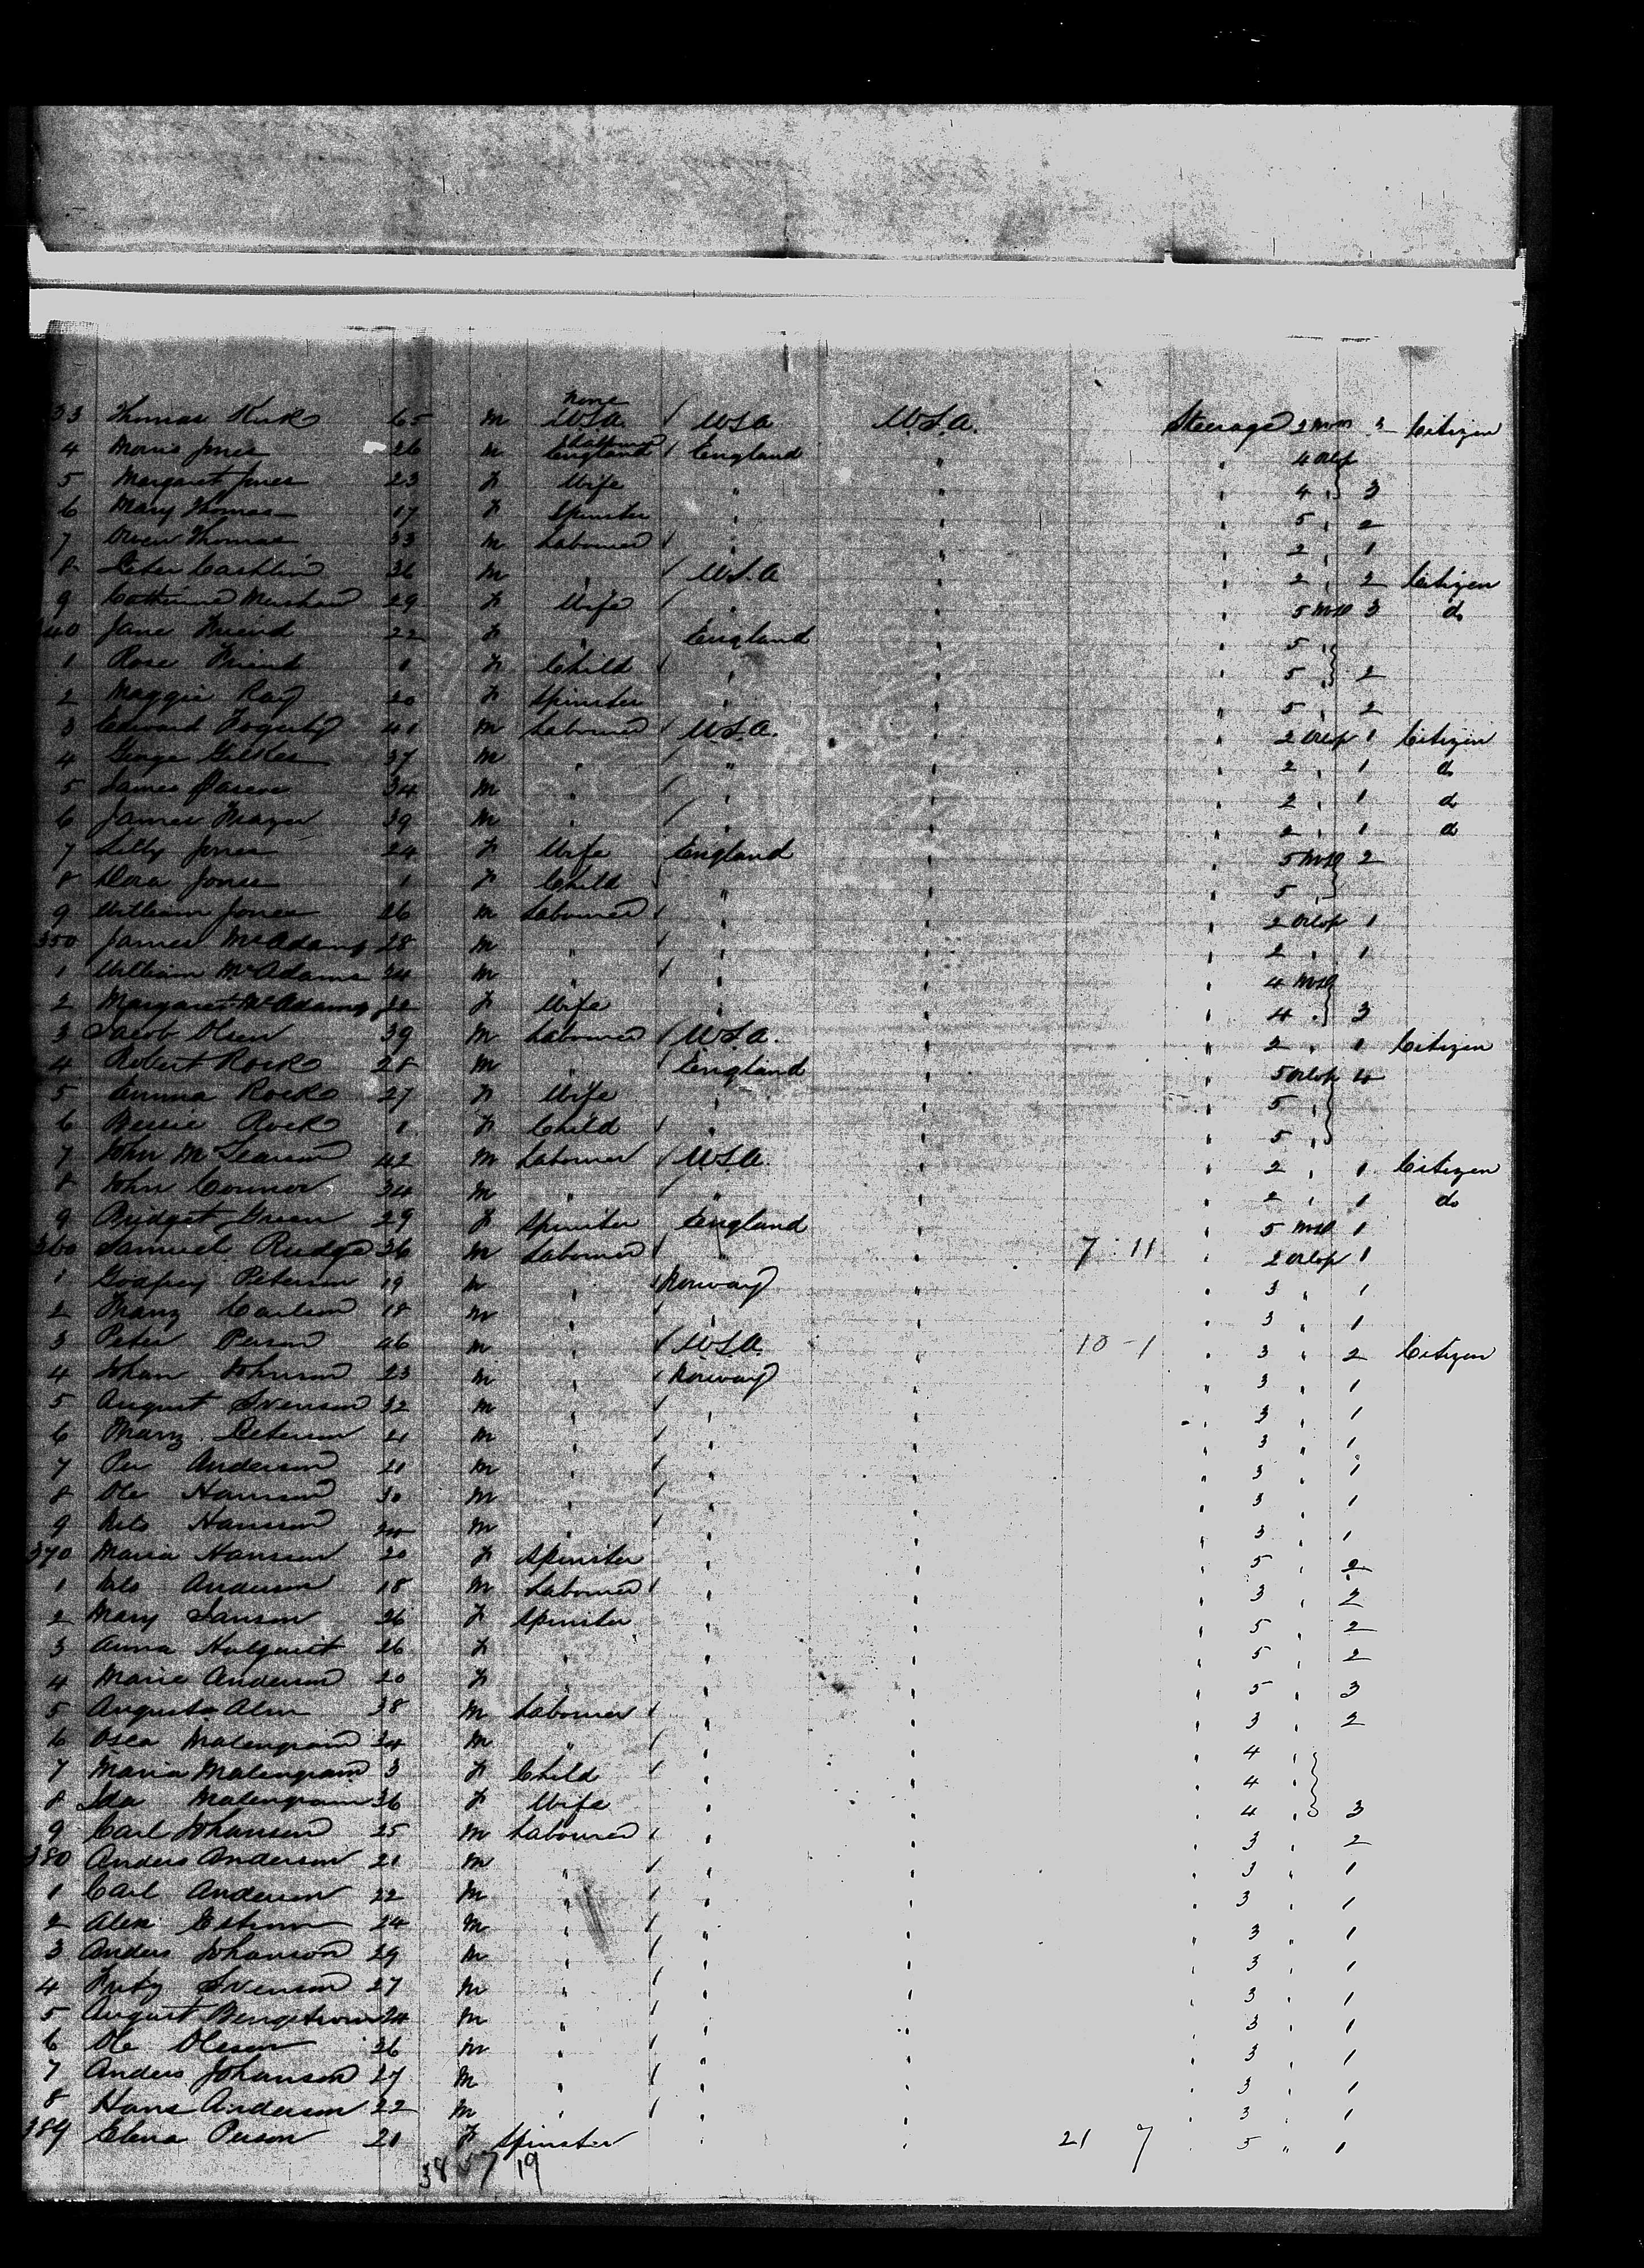 33 Thomas Kirk 65 m None U.S.A. / U.S.A. U.S.A. Steerage 2 Mn 2 Citizen
4 Morris Jones 26 m Labourer England / England " " 4 Orlop
5 Margaret Jones 23 F Wife " " " 4 " } 3
6 Mary Thomas 17 F Spinster " " " 5 " 2
7 Owen Thomas 33 m Labourer / " " " 2 " 1
8 Peter 36 m " / U.S.A " " 2 " 2 Citizen
9 Catherine 29 F Wife / " " " 5 2nd 3 do
340 Jane Friend 22 F " England " " 5 "
1 Rose Friend 1 F Child / " " " 5 " } 2
2 Maggie Ray 20 F Spinster " " " 5 " 2
3 Edward Fogerty 41 m Labourer / U.S.A. " " 2 Orlop 1 Citizen
4 George 37 m " / " " " 2 " 1 do
5 James 34 m " / " " " 2 " 1 do
6 James Mayer 39 m " / " " " 2 " 1 do
7 Lilly Jones 24 F Wife England " " 5 2
8 Dora Jones 1 F Child " " " 5 }
9 William Jones 26 m Labourer / " " " 2 Orlop 1
350 James McAdams 28 m " / " " " 2 " 1
1 William McAdams 34 m " / " " " 4
2 Margaret McAdams F Wife " " " 4 " } 3
3 Jacob Olsen 39 m Labourer / U.S.A. " " 2 " 1 Citizen
4 Robert Rock 28 m " / England " " 5 Orlop 4
5 Emma Rock 27 F Wife " " " 5 "
6 Bessie Rock 1 F Child / " " " 5 " }
7 John 42 m Labourer / U.S.A. " " 2 " 1 Citizen
8 John Connor 34 m " / " " " 2 " 1 do
9 Bridget Green 29 F Spinster England " " 5 1
360 Samuel Rudge 36 m Labourer / " " 7 : 11 " 2 Orlop 1
1 Godfrey Peterson 19 m " / Norway " " 3 " 1
2 Carlson 18 m " / " " " 3 " 1
3 Peter Person 46 m " / U.S.A. " 10 - 1 " 3 " 2 Citizen
4 Johan Johnson 23 m " / Norway " " 3 " 1
5 August Svenson 32 m " / " " " 3 " 1
6 Peterson 21 m " / " " " 3 " 1
7 Per Anderson 21 m " / " " " 3 " 1
8 Ole Hanson 30 m " / " " " 3 " 1
9 Nels Hansson 20 m " / " " " 3 " 1
370 Maria Hansson 20 F Spinster " " " 5 " 2
1 Nels Anderson 18 m Labourer / " " " 3 " 2
2 Mary Janson 26 F Spinster " " " 5 " 2
3 Anna Holquist 26 F " " " " 5 " 2
4 Marie Anderson 20 F " " " " 5 " 3
5 Augusta Alm 38 m Labourer / " " " 3 " 2
6 34 m " / " " " 4 "
7 Maria 3 F Child / " " " 4 "
8 Ida 36 F Wife " " " 4 " } 3
9 Carl Johanson 25 m Labourer / " " " 3 " 2
380 Anders Anderson 21 m " / " " " 3 " 1
1 Carl Anderson 22 m " / " " " 3 " 1
2 Alex 24 m " / " " " 3 " 1
3 Anders Johanson 29 m " / " " " 3 " 1
4 Fritz Svenson 27 m " / " " " 3 " 1
5 August Bengstrom 24 m " / " " " 3 " 1
6 Ole Olesen 26 m " / " " " 3 " 1
7 Anders Johanson 27 m " / " " " 3 " 1
8 Hans Anderson 22 m " / " " " 3 " 1
389 Elena Person 21 F Spinster " " 21 7 " 5 " 1
38 57 19